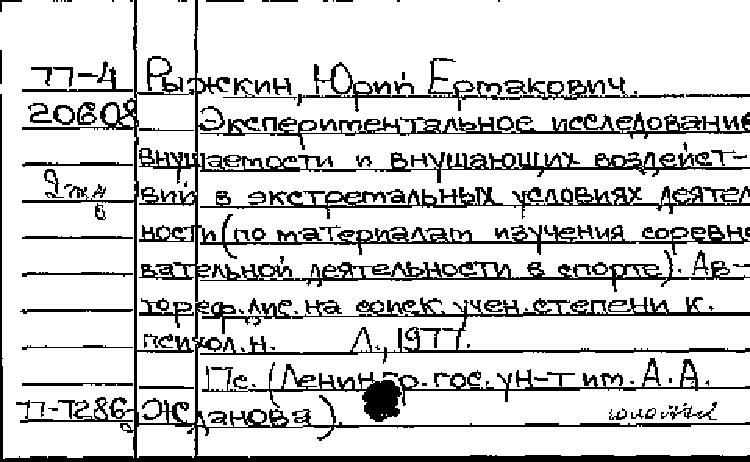 77-4 Рыжкин, Юрий Ермакович.
20608 Экспериментальное исследование
внушаемости и внушающих воздейст-
вий в экстремальных условиях деятел
ности (по материалам изучения соревно
вательной деятельности в спорте). Ав-
тореф. дис. на соиск. учен. степени к.
психол. н. Л., 1977.
17с. (Ленингр. гос. ун-т им. А.А.
77-7286 Жданова).